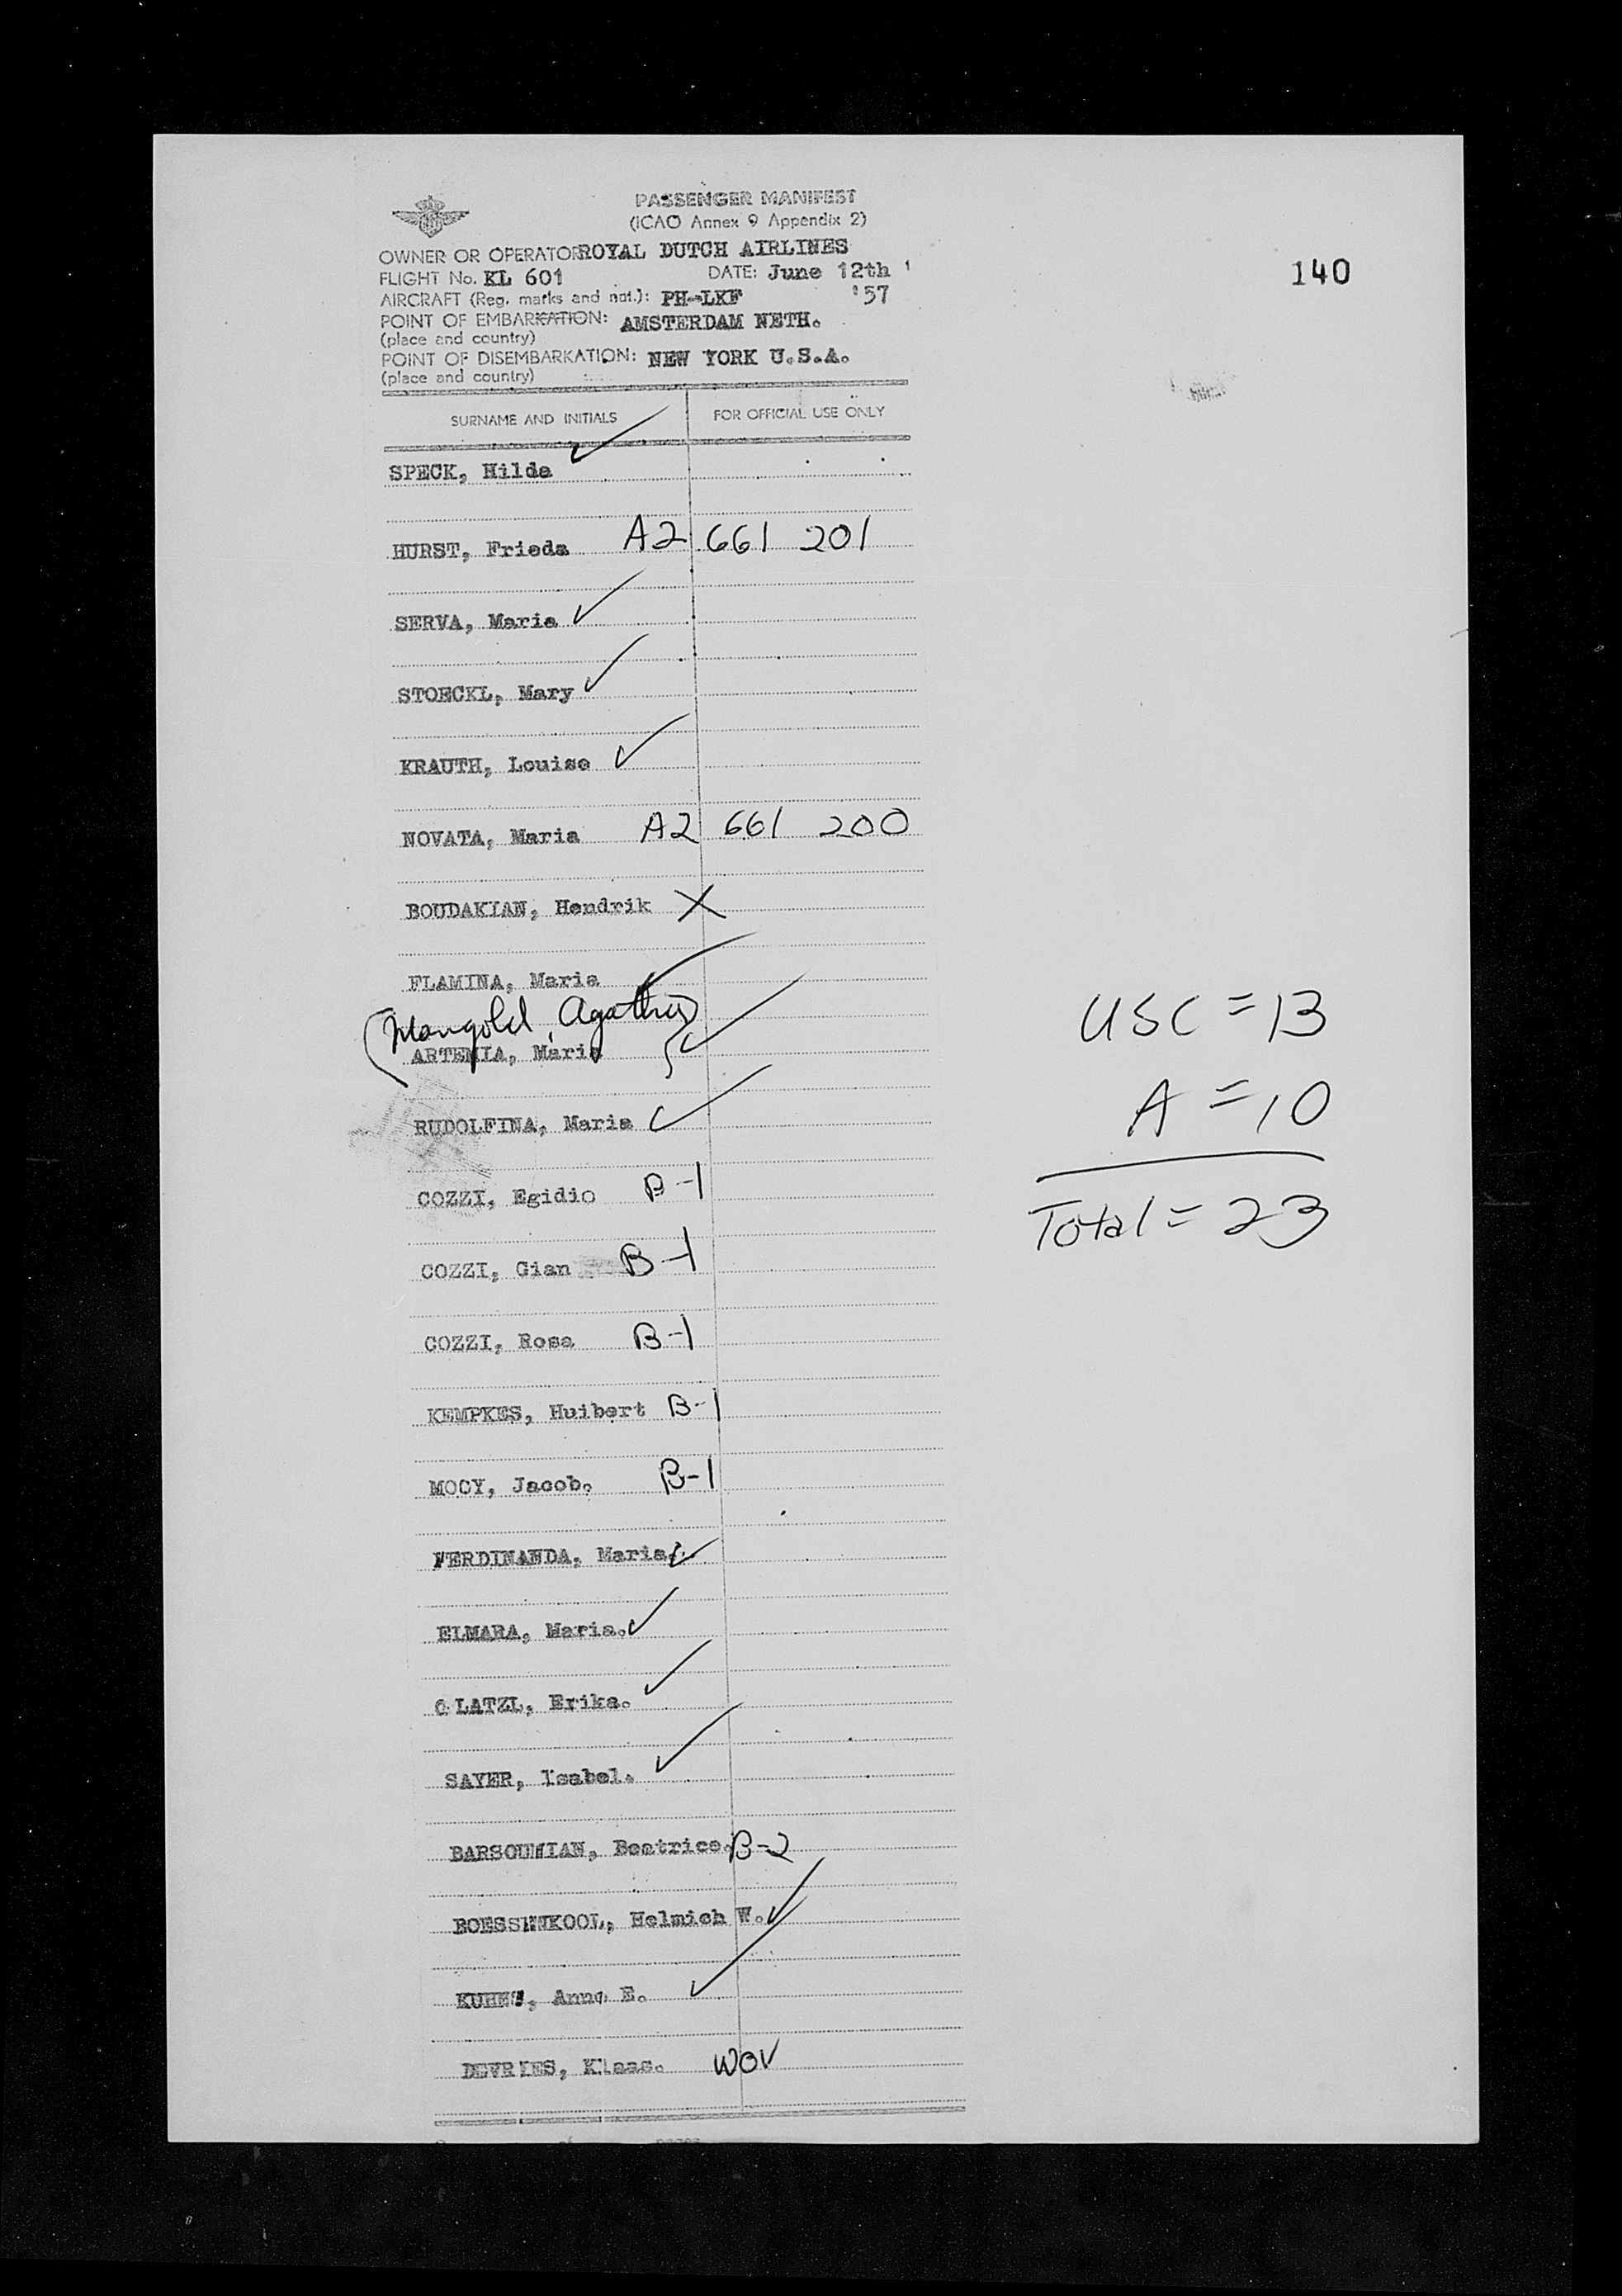 PASSENGER MANIFEST
(ICAO Annex 9 Appendix 2)
OWNER OR OPERATOR ROYAL DUTCH AIRLINES
FLIGHT No. KL 601 DATE: June 12th '57
140
AIRCRAFT (Reg. marks and nat.): PH-LKF
POINT OF EMBARKATION: AMSTERDAM NETH.
(place and country)
POINT OF DISEMBARKATION: NEW YORK U.S.A.
(place and country)
SURNAME AND INITIALS FOR OFFICIAL USE ONLY
SPECK, Hilda ✓
HURST, Frieda A2 661 201
SERVA, Maria ✓
STOECKL, Mary ✓
KRAUTH, Louise ✓
NOVATA, Maria A2 661 200
BOUDAKIAN, Hendrik X
FLAMINA, Maria ✓
(Mangold, Agatha)
ARTEMIA, Maria ✓
RUDOLFINA, Maria ✓
COZZI, Egidio B-1
COZZI, Gian B-1
COZZI, Rosa B-1
KEMPKES, Huibert B-1
MOOY, Jacob. B-1
FERDINANDA, Maria. ✓
ELMARA, Maria. ✓
LATZL, Erika. ✓
SAYER, Isabel. ✓
BARSOUMIAN, Beatrice. B-2
BOESSENKOOL, Helmich W. ✓
Anna E. ✓
DEVRIES, Klaas. WOV
USC = 13
A = 10
Total = 23